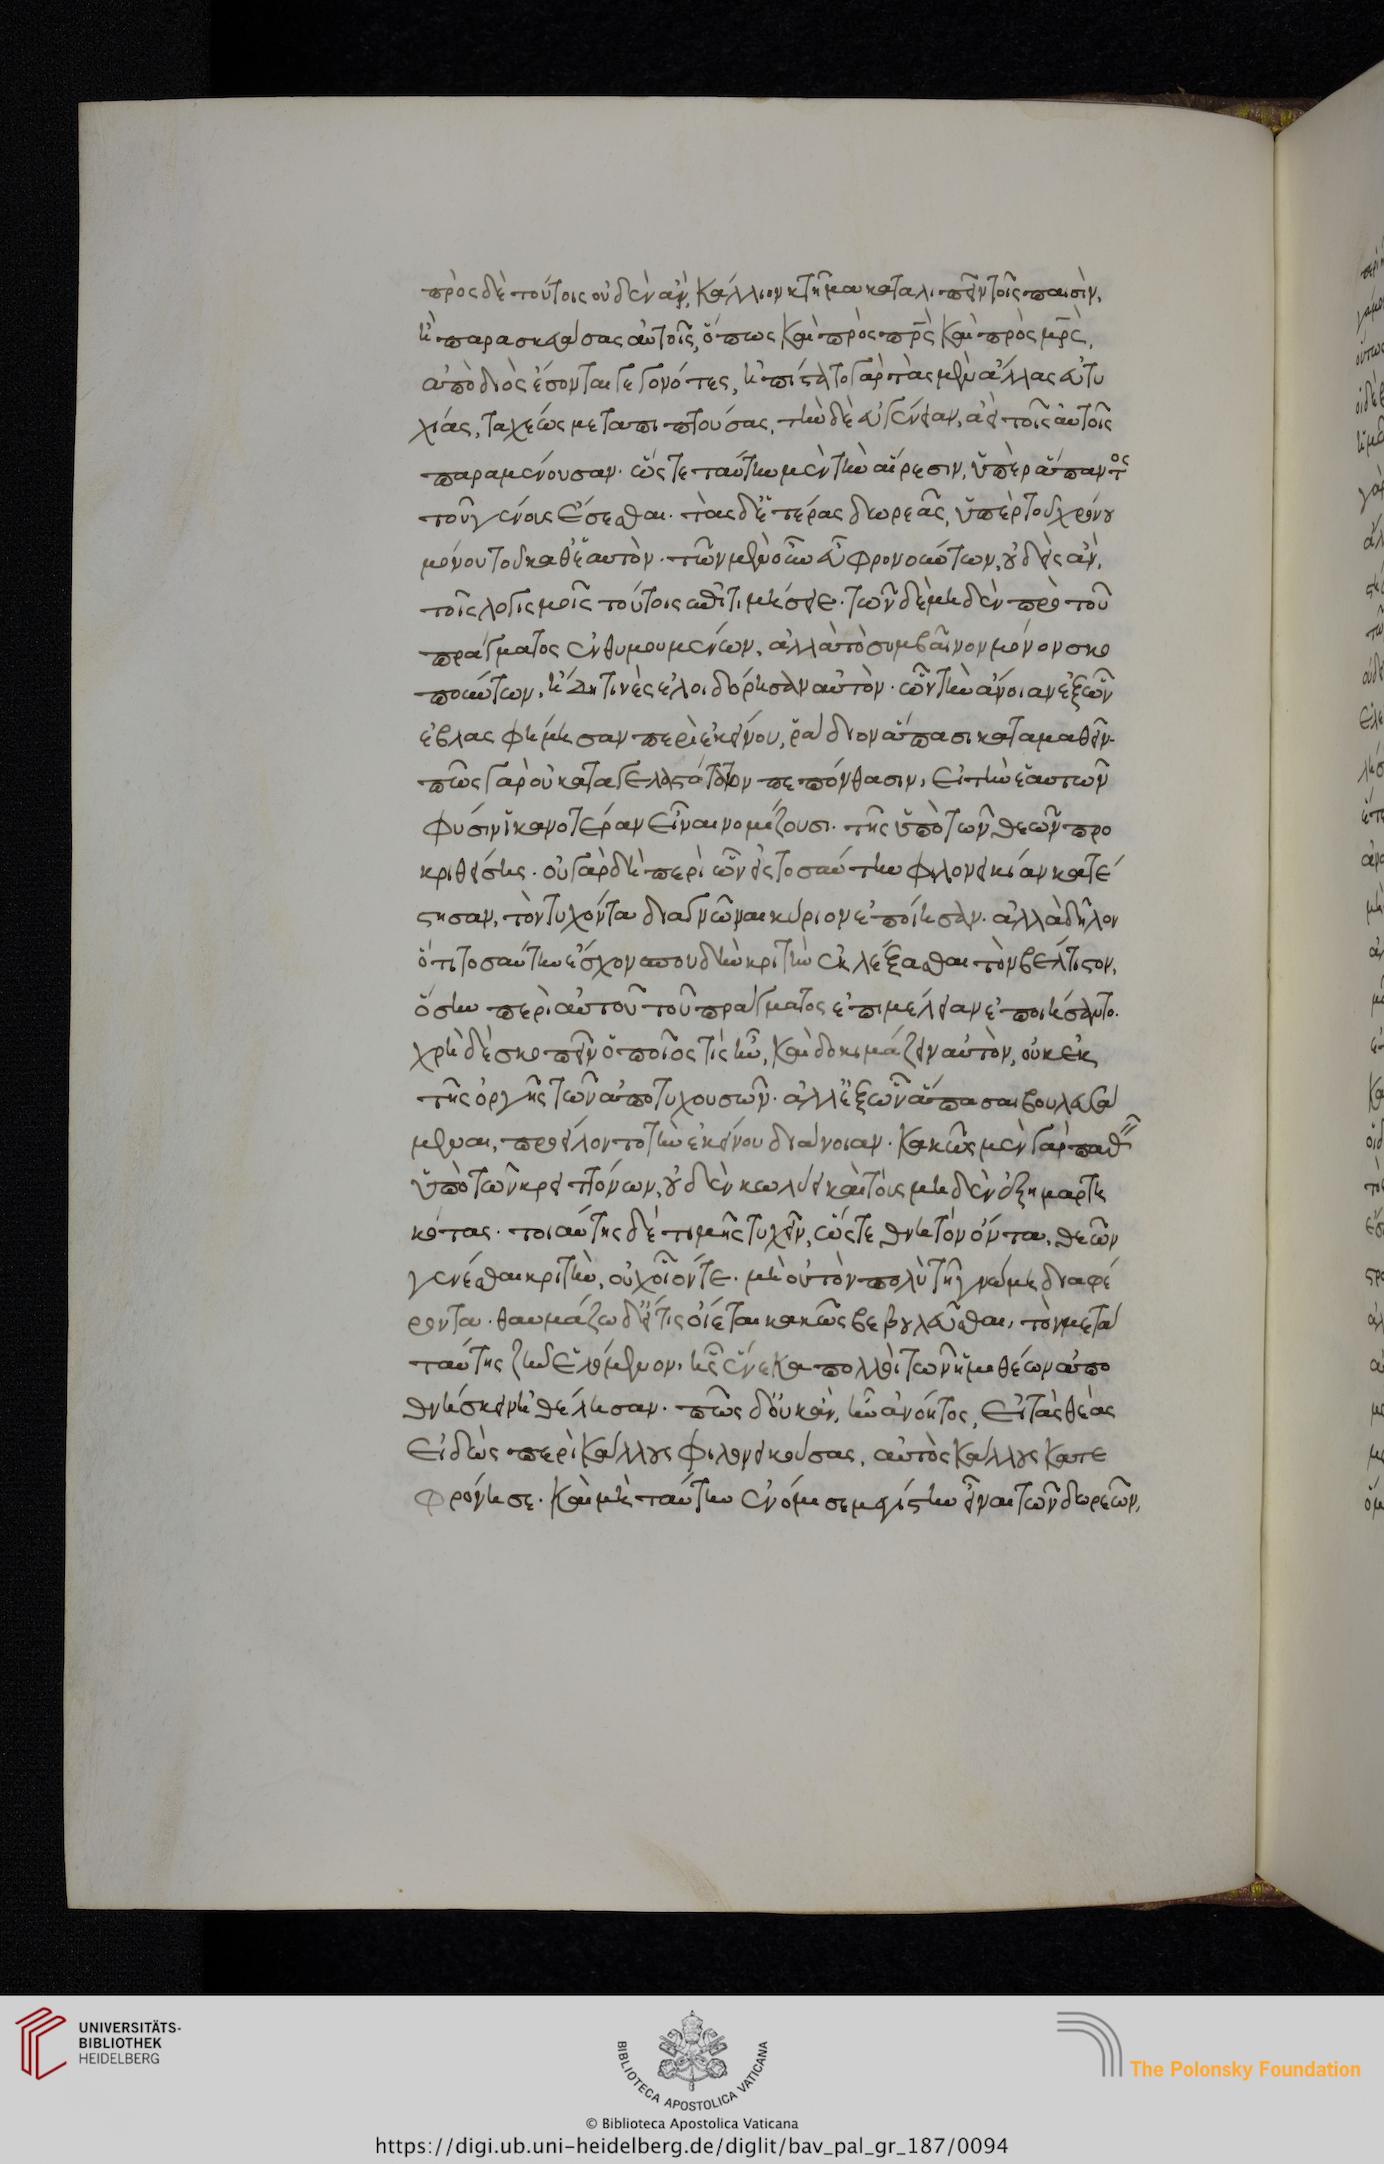 πρὸς δὲ τούτοις οὐδὲν ἂν, κάλλιον κτῆμα καταλιπεῖν τοῖς παισὶν,
ἢ παρασκευάσας αὐτοῖς, ὅπως καὶ πρὸς πρ̅ς καὶ πρὸς μρ̅ς,
ἀπὸ διὸς ἔσονται γεγονότες, ἠπίστατο γὰρ τὰς μὲν ἄλλας εὐτυ
χίας, ταχέως μεταπιπτούσας, τὴν δὲ εὐγένειαν, ἀεὶ τοῖς αὐτοῖς
παραμένουσαν· ὥστε ταύτην μὲν τὴν αἵρεσιν, ὑπὲρ ἅπαντος
τοῦ γένους ἔσεσθαι· τὰς δ' ἑτέρας δωρεὰς, ὑπὲρ τοῦ χρόνου
μόνου τοῦ καθ' ἑαυτὸν· τῶν μὲν οὖν εὖ φρονούντων, οὐδεὶς ἂν,
τοῖς λογισμοῖς τούτοις ἐπιτιμήσειε· τῶν δὲ μηδὲν πρὸ τοῦ
πράγματος ἐνθυμουμένων, ἀλλὰ τὸ συμβαῖνον μόνον σκο
πούντων, ἤδη τινὲς ἐλοιδόρησαν αὐτὸν· ὧν τὴν ἄνοιαν ἐξ ὧν
ἐβλασφήμησαν περὶ ἐκείνου, ῥάδιον ἅπασι καταμαθεῖν·
πῶς γὰρ οὐ καταγελαστότατον πεπόνθασιν, εἰ τὴν ἑαυτῶν
φύσιν ἱκανοτέραν εἶναι νομίζουσι τῆς ὑπὸ τῶν θεῶν προ
κριθείσης· οὐ γὰρ δὴ περὶ ὧν εἰς τοσαύτην φιλονεικίαν κατέ
στησαν, τὸν τυχόντα διαγνῶναι κύριον ἐποίησαν· ἀλλὰ δῆλον
ὅτι τοσαύτην ἔσχον σπουδὴν κριτὴν ἐκλέξασθαι τὸν βέλτιστον,
ὅσην περὶ αὐτοῦ τοῦ πράγματος ἐπιμέλειαν ἐποιήσαντο·
χρὴ δὲ σκοπεῖν ὁποῖός τις ἦν, καὶ δοκιμάζειν αὐτὸν, οὐκ ἐκ
τῆς ὀργῆς τῶν ἀποτυχουσῶν· ἀλλ' ἐξ ὧν ἅπασαι βουλευσά
μεναι, προείλοντο τὴν ἐκείνου διάνοιαν· κακῶς μὲν γὰρ παθεῖν
ὑπὸ τῶν κρειττόνων, οὐδὲν κωλύει καὶ τοὺς μηδὲν ἐξημαρτη
κότας· τοιαύτης δὲ τιμῆς τυχεῖν, ὥστε θνητὸν ὄντα, θεῶν
γενέσθαι κριτὴν, οὐχ οἷόν τε μὴ οὐ τὸν πολὺ τῇ γνώμῃ διαφέ
ροντα· θαυμάζω δ' εἴ τις οἴεται κακῶς βεβουλεῦσθαι, τὸν μετὰ
ταύτης ζῆν ἑλόμενον, ἧς ἕνεκα πολλοὶ τῶν ἡμιθέων ἀπο
θνήσκειν ἠθέλησαν· πῶς δ' οὐκ ἂν, ἦν ἀνόητος, εἰ τὰς θεὰς
εἰδὼς περὶ κάλλους φιλονεικούσας, αὐτὸς κάλλους κατε
φρόνησε· καὶ μὴ ταύτην ἐνόμισε μεγίστην εἶναι τῶν δωρεῶν,
UNIVERSITÄTS-
BIBLIOTHEK
HEIDELBERG
BIBLIOTECA APOSTOLICA VATICANA
The Polonsky Foundation
© Biblioteca Apostolica Vaticana
https://digi.ub.uni-heidelberg.de/diglit/bav_pal_gr_187/0094